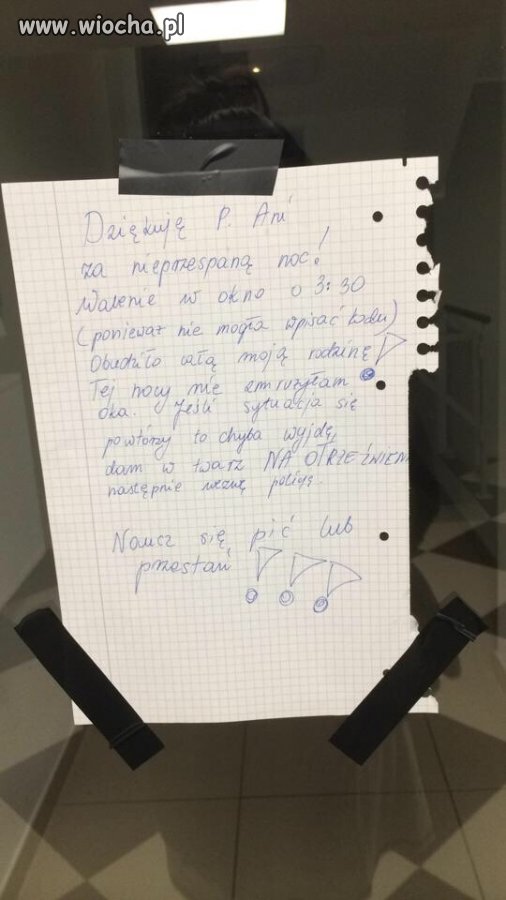 www.wiocha.pl
Dziękuję P. Ani
za nieprzespaną noc!
Walenie w okno o 3:30
(ponieważ nie mogła wpisać kodu)
Obudziło całą moją rodzinę!
Tej nocy nie zmrużyłam
oka. Jeśli sytuacja się
powtórzy to chyba wyjdę,
dam w twarz NA OTRZEŹWIENIE
następnie wezwę policję.
Naucz się pić lub
przestań!!!